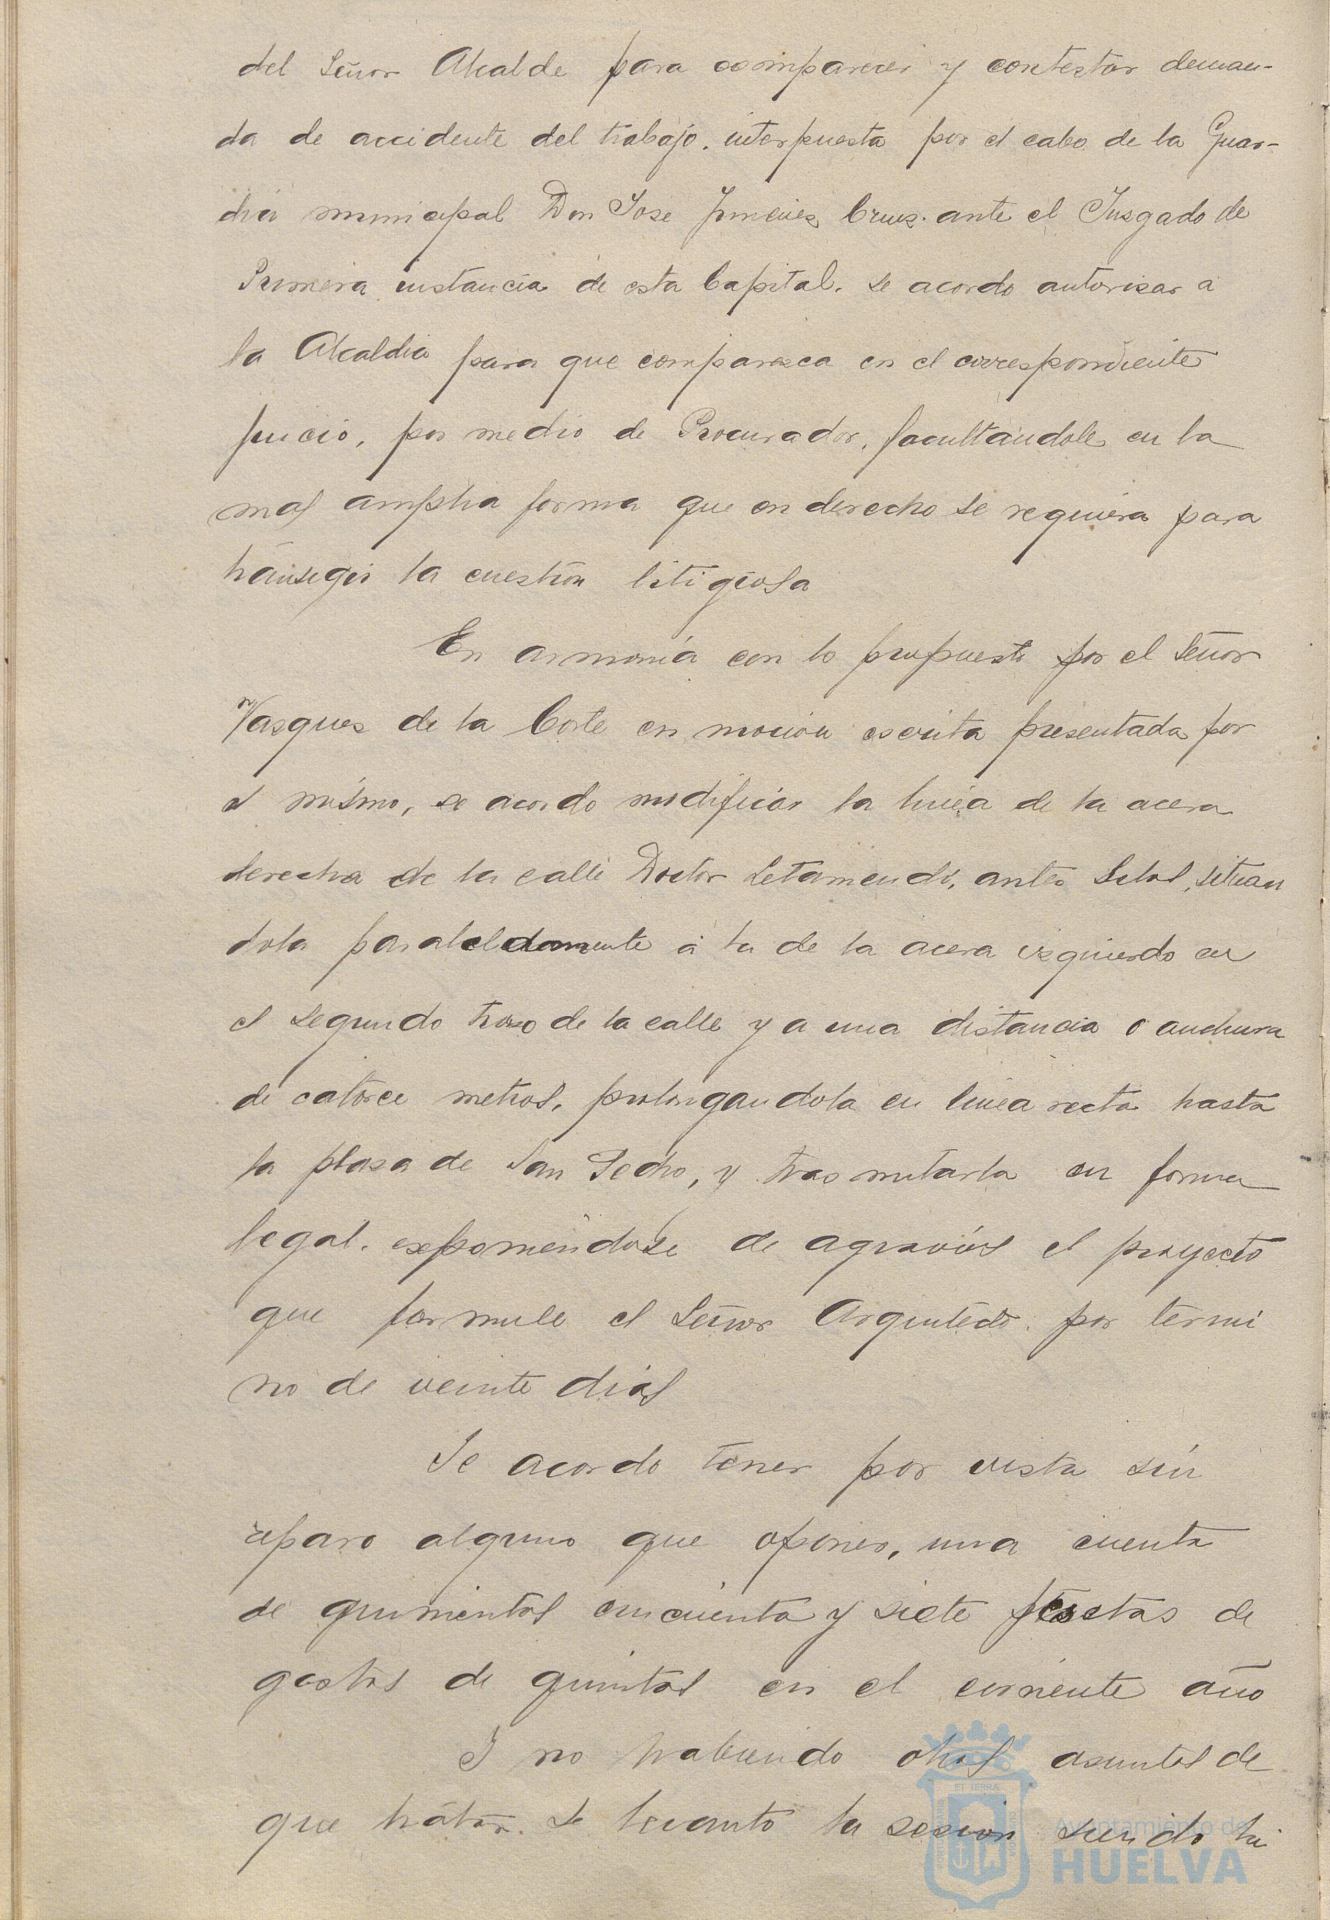 del Señor Alcalde para comparecer y contestar deman-
da de accidente del trabajo. interpuesta por el cabo de la Guar-
dia municipal Don Jose Jimenes Crus. ante el Jusgado de
Primera instancia de esta Capital. se acordo autorisar a
la Alcaldia para que comparesca en el correspondiente
juicio, por medio de Procurador, facultandole en la
mas amplia forma que en derecho se requiera para
transegir la cuestion litigiosa
En armonia con lo propuesto por el Señor
Vasques de la Corte en mocion escrita presentada por
el mismo, se acordo modificar la linea de la acera
derecha de la calle Doctor Letamendi, antes Silos, situan
dola paraleldamente a la de la acera isquierda en
el segundo troso de la calle y a una distancia o anchura
de catorce metros, prolongandola en linea recta hasta
la plasa de San Pedro, y tras mitarla en forma
legal. exponiendose de agravios el proyecto
que formule el Señor Arquitecto. por termi
no de veinte dias
Se acordo tener por vista sin
reparo alguno que oponer, una cuenta
de quinientas cincuenta y siete pesetas de
gastos de quintas en el corriente año
I no habiendo otros asuntos de
que tratar. se levanto la sesion siendo la
Ayuntamiento de
HUELVA